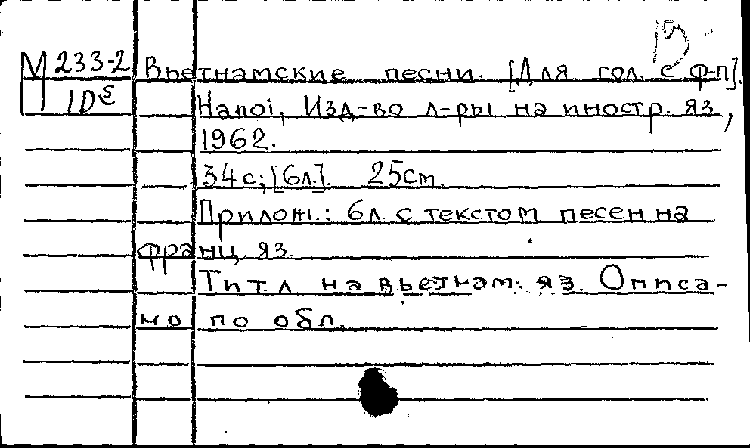 М 233-2 Вьетнамские песни. [Для гол. с ф-п].
IDε
Hanoi, Изд-во л-ры на иностр. яз,
1962.
34с; [6л]. 25см.
Прилож.: 6л. с текстом песен на
франц. яз.
Тит. л на вьетнам. яз. Описа-
но по обл.